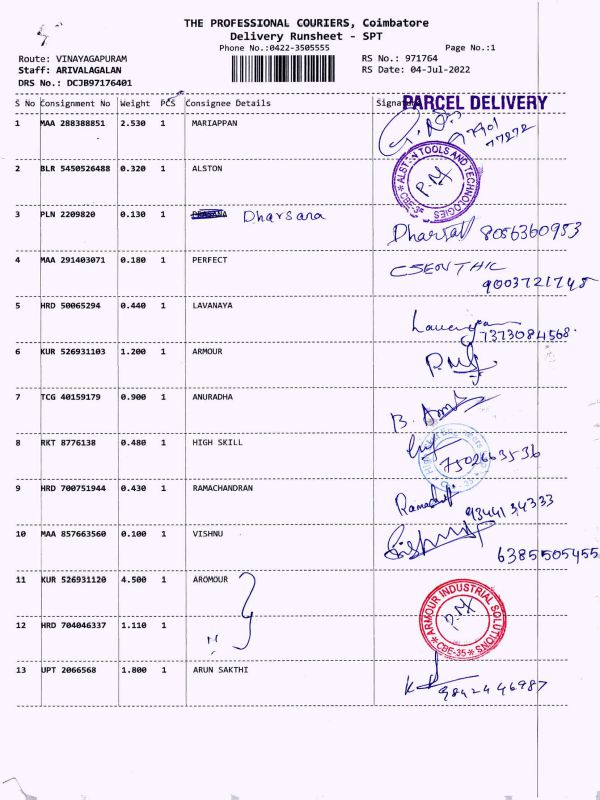 THE PROFESSIONAL COURIERS, Coimbatore
Delivery Runsheet - SPT
Phone No.:0422-3505555 Page No.:1
Route: VINAYAGAPURAM RS No.: 971764
Staff: ARIVALAGALAN RS Date: 04-Jul-2022
DRS No.: DCJB97176401
S No Consignment No Weight PCS Consignee Details
PARCEL DELIVERY
1 MAA 288388851 2.530 1 MARIAPPAN
77272
2 BLR 5450526488 0.320 1 ALSTON
ALSTON TOOLS AND TECHNOLOGIES
CBE-35
3 PLN 2209820 0.130 1 Dharsana
8056360953
4 MAA 291403071 0.180 1 PERFECT
CSENTHIL
9003721745
5 HRD 50065294 0.440 1 LAVANAYA
7373084568.
6 KUR 526931103 1.200 1 ARMOUR
7 TCG 40159179 0.900 1 ANURADHA
8 RKT 8776138 0.480 1 HIGH SKILL
7502663536
9 HRD 700751944 0.430 1 RAMACHANDRAN
9344134333
10 MAA 857663560 0.100 1 VISHNU
6385505455
11 KUR 526931120 4.500 1 AROMOUR
ARMOUR INDUSTRIAL SOLUTIONS
CBE-35
12 HRD 704046337 1.110 1 "
13 UPT 2066568 1.800 1 ARUN SAKTHI
9842446987